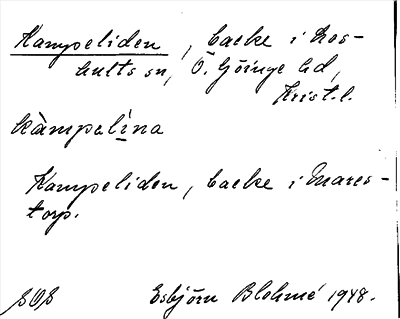 Kampeliden, backe i Los-
hults sn, Ö. Göinge hd,
Krist.l.
kàmpelina
Kampeliden, backe i Mares-
torp.
SOS Esbjörn Blohmé 1948.